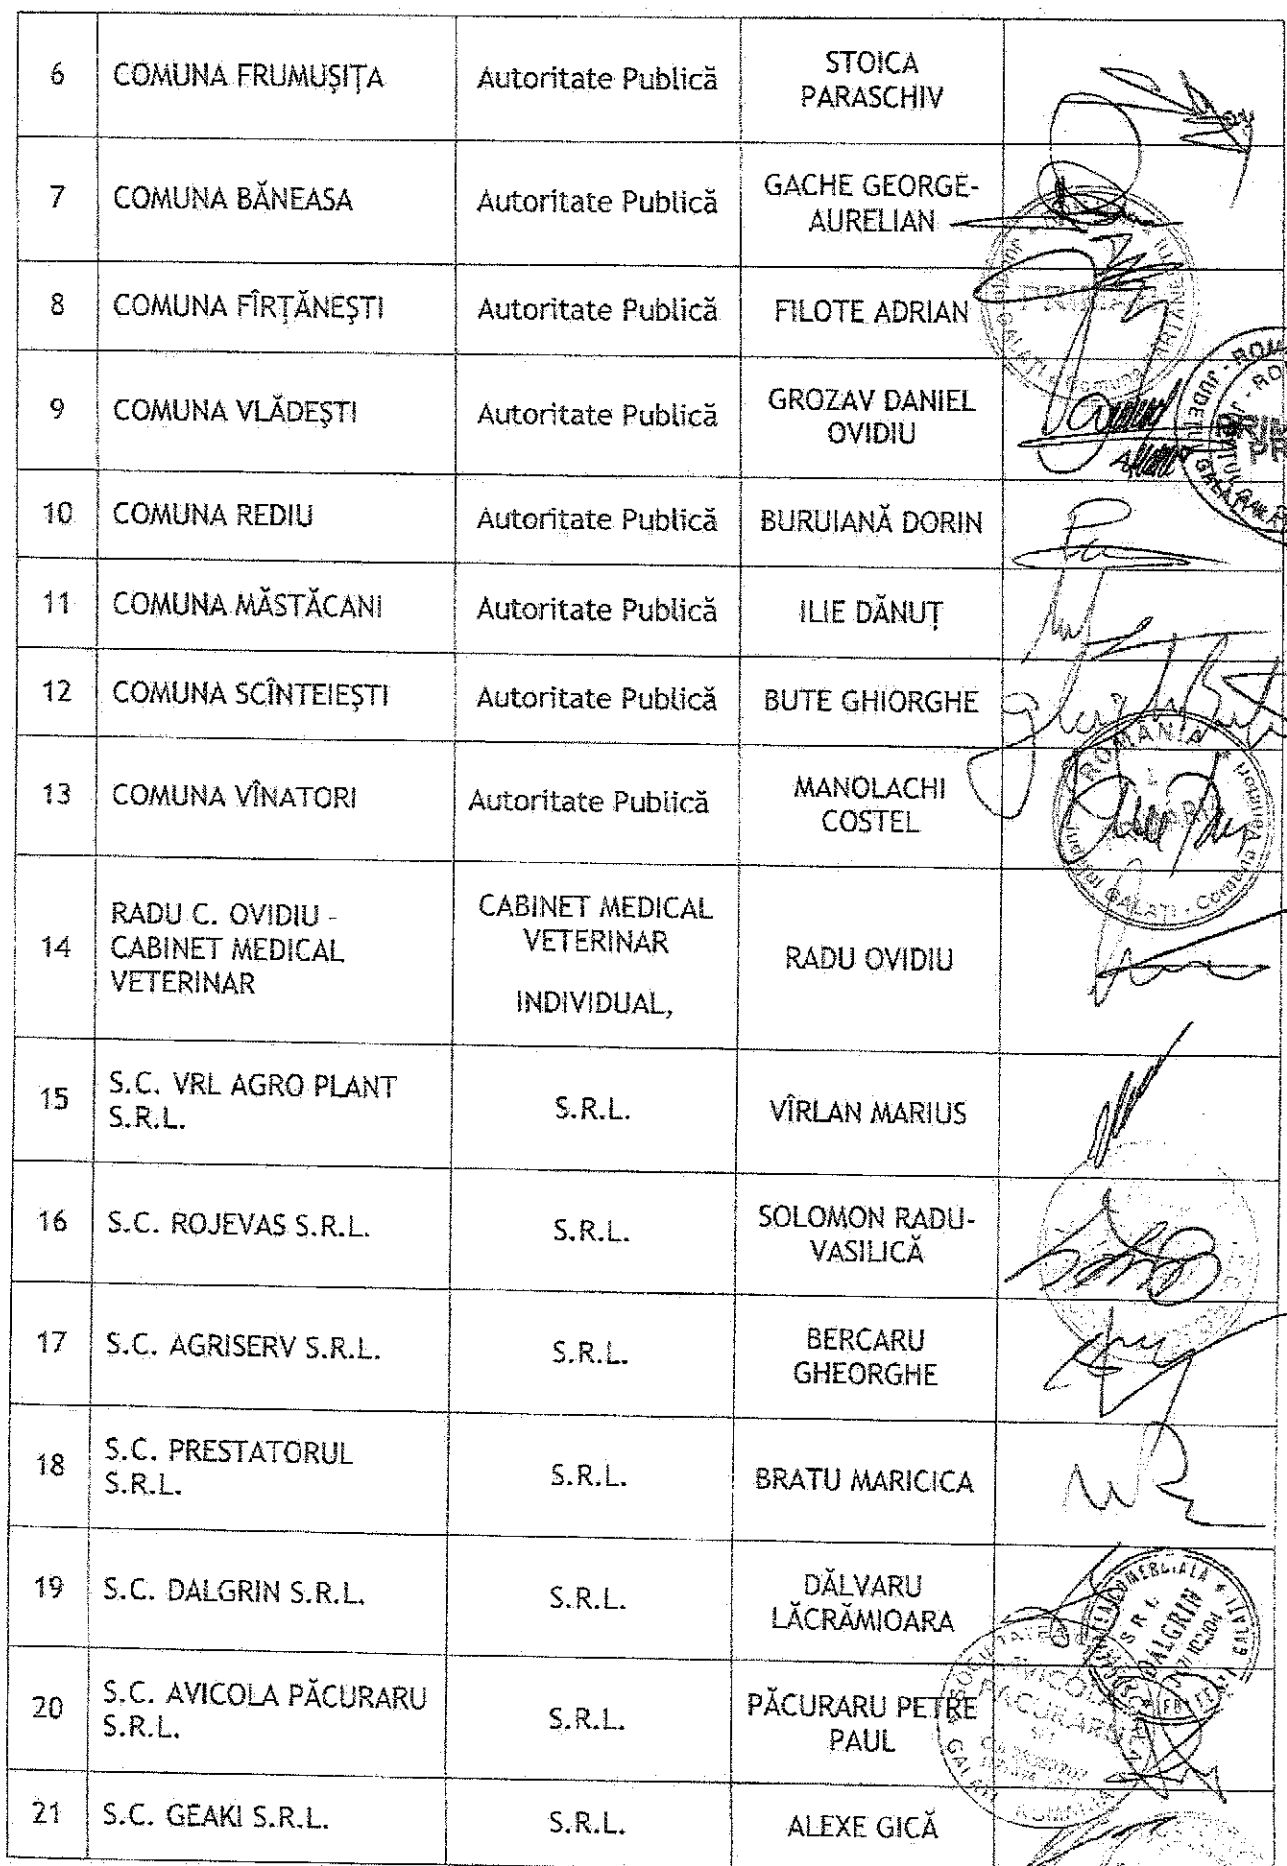 6 COMUNA FRUMUȘIȚA Autoritate Publică STOICA
PARASCHIV
7 COMUNA BĂNEASA Autoritate Publică GACHE GEORGE-
AURELIAN
8 COMUNA FÎRȚĂNEȘTI Autoritate Publică FILOTE ADRIAN
PRIMAR
9 COMUNA VLĂDEȘTI Autoritate Publică GROZAV DANIEL
OVIDIU
10 COMUNA REDIU Autoritate Publică BURUIANĂ DORIN
11 COMUNA MĂSTĂCANI Autoritate Publică ILIE DĂNUȚ
12 COMUNA SCÎNTEIEȘTI Autoritate Publică BUTE GHIORGHE
ROMÂNIA
13 COMUNA VÎNATORI Autoritate Publică MANOLACHI
COSTEL
GALAȚI
14 RADU C. OVIDIU -
CABINET MEDICAL
VETERINAR
CABINET MEDICAL
VETERINAR
INDIVIDUAL,
RADU OVIDIU
15 S.C. VRL AGRO PLANT
S.R.L.
S.R.L. VÎRLAN MARIUS
16 S.C. ROJEVAS S.R.L. S.R.L. SOLOMON RADU-
VASILICĂ
17 S.C. AGRISERV S.R.L. S.R.L. BERCARU
GHEORGHE
18 S.C. PRESTATORUL
S.R.L.
S.R.L. BRATU MARICICA
19 S.C. DALGRIN S.R.L. S.R.L. DĂLVARU
LĂCRĂMIOARA
SRL
DALGRIN
20 S.C. AVICOLA PĂCURARU
S.R.L.
S.R.L. PĂCURARU PETRE
PAUL
AVICOLA
PACURARU
21 S.C. GEAKI S.R.L. S.R.L. ALEXE GICĂ